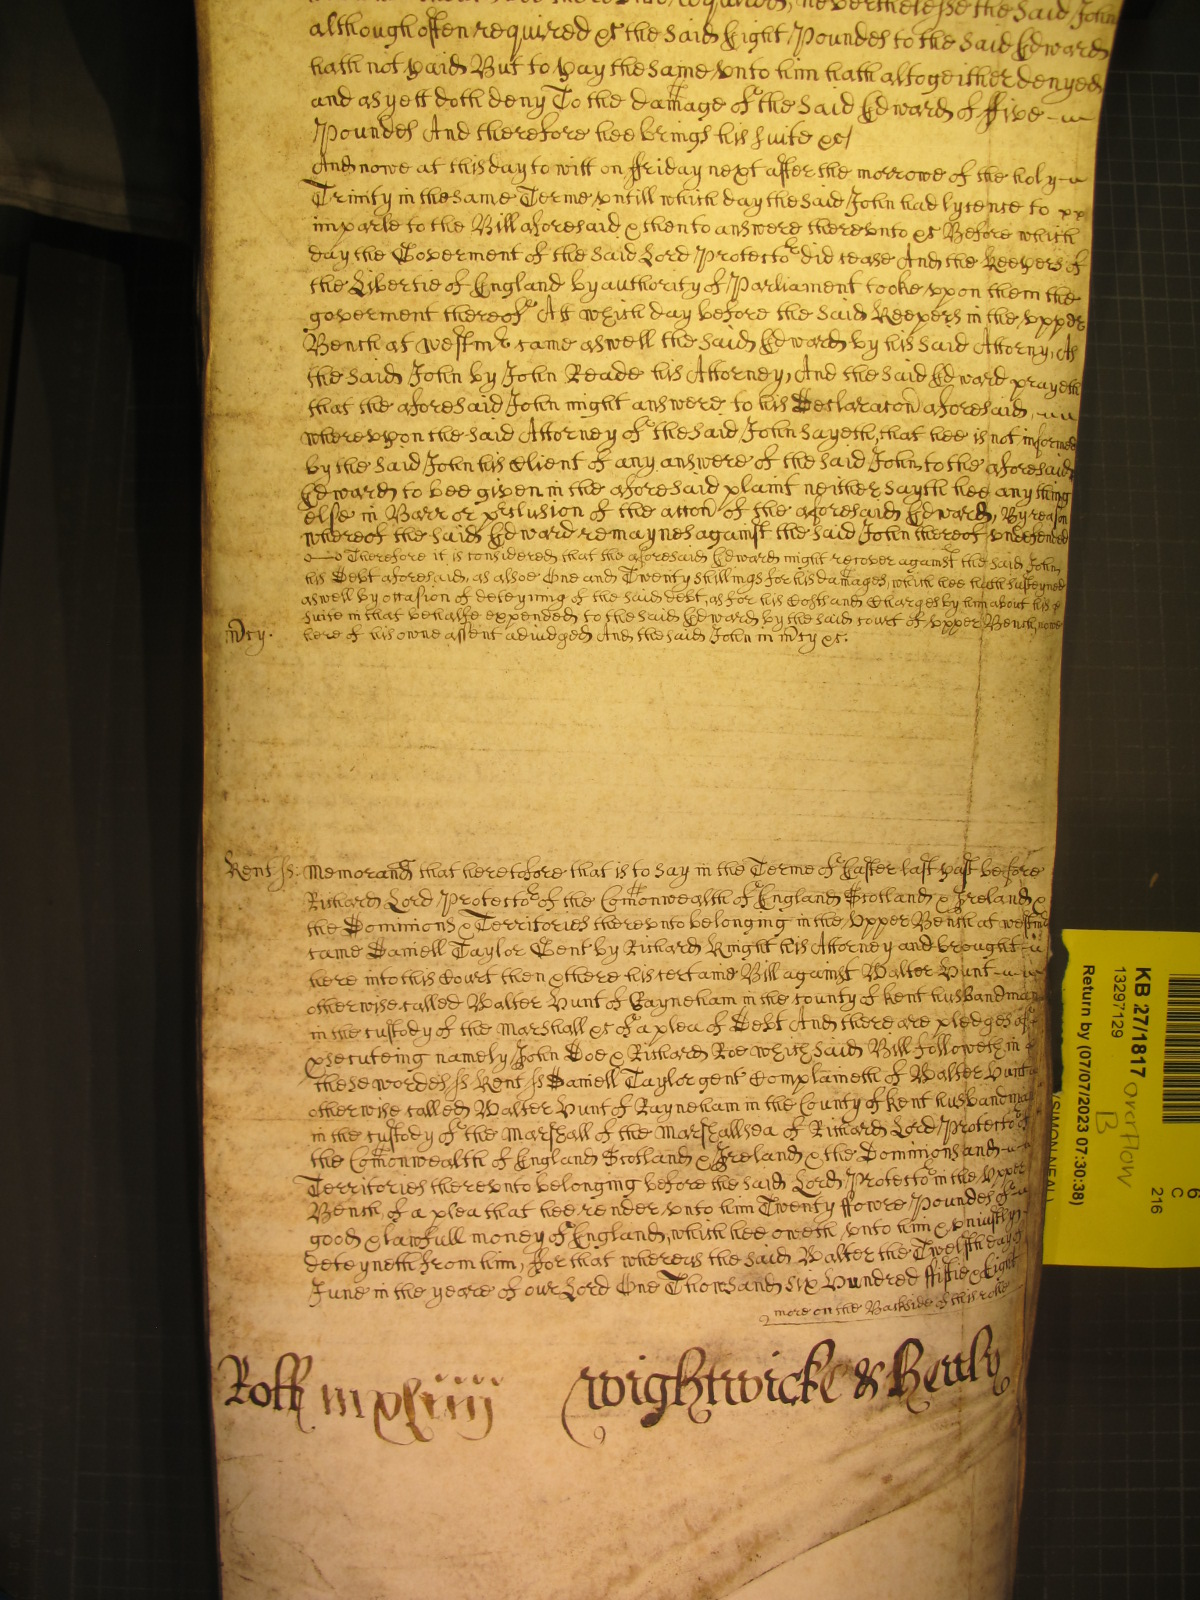 nevertheless the said John
although often required &c the said Eight Poundes to the said Edward
hath not paid But to pay the same vnto him hath altogeither denyed
and as yett doth deny To the damage of the said Edward of ffive
Poundes And therefore hee brings his suite &c
And nowe at this day to witt on ffriday next after the morrowe of the holy
Trinity in the same Terme vntill which day the said John had lycense to
imparle to the Bill aforesaid & then to answere therevnto &c Before which
day the Goverment of the said Lord Protector did cease And the Keepers of
the Libertie of England by authority of Parliament tooke vpon them the
goverment thereof Att which day before the said Keepers in the vpper
Bench at Westmr came aswell the said Edward by his said Attorny, As
the said John by John Reade his Attorney, And the said Edward prayeth
that the aforesaid John might answere to his Declaracon aforesaid,
wherevpon the said Attorney of the said John sayeth, that hee is not informed
by the said John his Client of any answere of the said John to the aforesaid
Edward to bee given in the aforesaid plaint neither sayth hee any thing
else in Barr or preclusion of the accon of the aforesaid Edward, By reason
whereof the said Edward remaynes against the said John thereof vndefended
Therefore it is considered that the aforesaid Edward might recover against the said John
his Debt aforesaid, as alsoe One and Twenty shillings for his damages, which hee hath susteyned
aswell by occasion of deteyning of the said debt, as for his Costs and Charges by him about his
suite in that behalfe expended to the said Edward by the said court of vpper Bench, nowe
here of his owne assent adiudged And the said John in mcy &c.
mcy.
Kent ss: Memorand that heretofore that is to say in the Terme of Easter last past before
Richard Lord Protector of the Comonwealth of England Scotland & Ireland &
the Dominions & Territories therevnto belonging in the Vpper Bench at westmr
came Daniell Taylor Gent by Richard Knight his Attorney and brought
here into this Court then & there his certaine Bill against Walter Hunt
otherwise called Walter Hunt of Rayneham in the county of Kent husbandman
in the custody of the Marshall &c of a plea of Debt And there are pledges of
prosecuteing namely John Doe & Richard Roe which said Bill followeth in
these wordes ss Kent ss Daniell Taylor gent Complaineth of Walter Hunt
otherwise called Walter Hunt of Rayneham in the County of Kent husbandman
in the custody of the Marshall of the Marshallsea of Richard Lord Protector of
the Comonwealth of England Scotland & Ireland & the Dominions and
Territories therevnto belonging before the said Lord Protector in the Vpper
Bench, of a plea that hee render vnto him Twenty ffowre Poundes of
good & lawfull money of England, which hee oweth vnto him & vniustly
deteyneth from him, ffor that whereas the said Walter the Twelfth day of
June in the yeare of our Lord One Thowsand six Hundred ffiftie & Eight
more on the Backside of this rolle
Roll mxliiij Wightwicke & Henly
KB 27/1817
13297129
Return by (07/07/2023 07:30:38)
Overflow
B
216
C
6